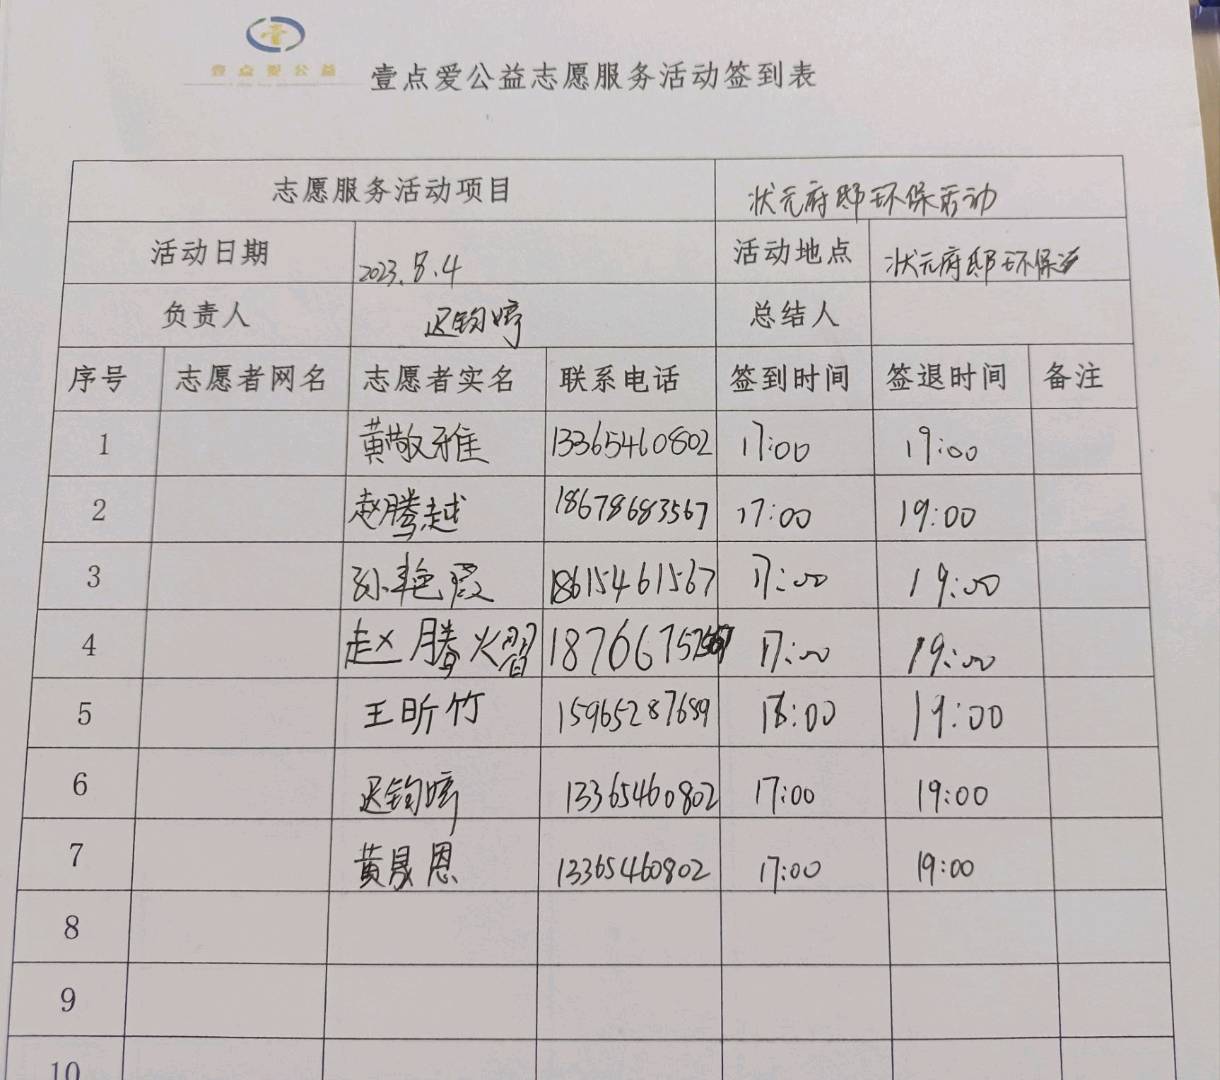 壹点爱公益
壹点爱公益志愿服务活动签到表
志愿服务活动项目 状元府邸环保活动
活动日期 2023.8.4 活动地点 状元府邸环保
负责人 迟钧婷 总结人
序号 志愿者网名 志愿者实名 联系电话 签到时间 签退时间 备注
1 黄敬雅 13365460802 17:00 19:00
2 赵腾越 18678683567 17:00 19:00
3 孙艳霞 18615461567 17:00 19:00
4 赵腾熠 17:00 19:00
5 王昕竹 15965287689 18:00 19:00
6 迟钧婷 13365460802 17:00 19:00
7 黄晟恩 13365460802 17:00 19:00
8
9
10